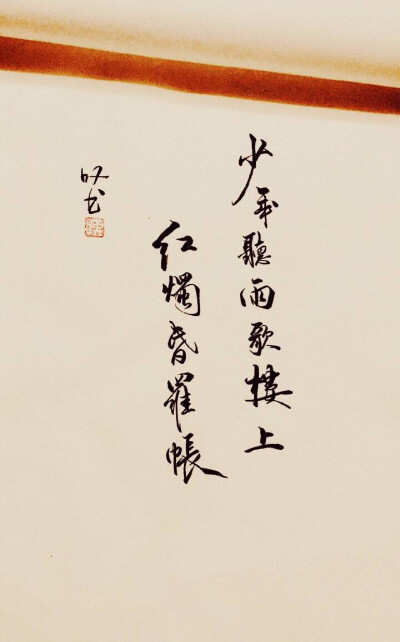 少年聽雨歌樓上
紅燭昏羅帳